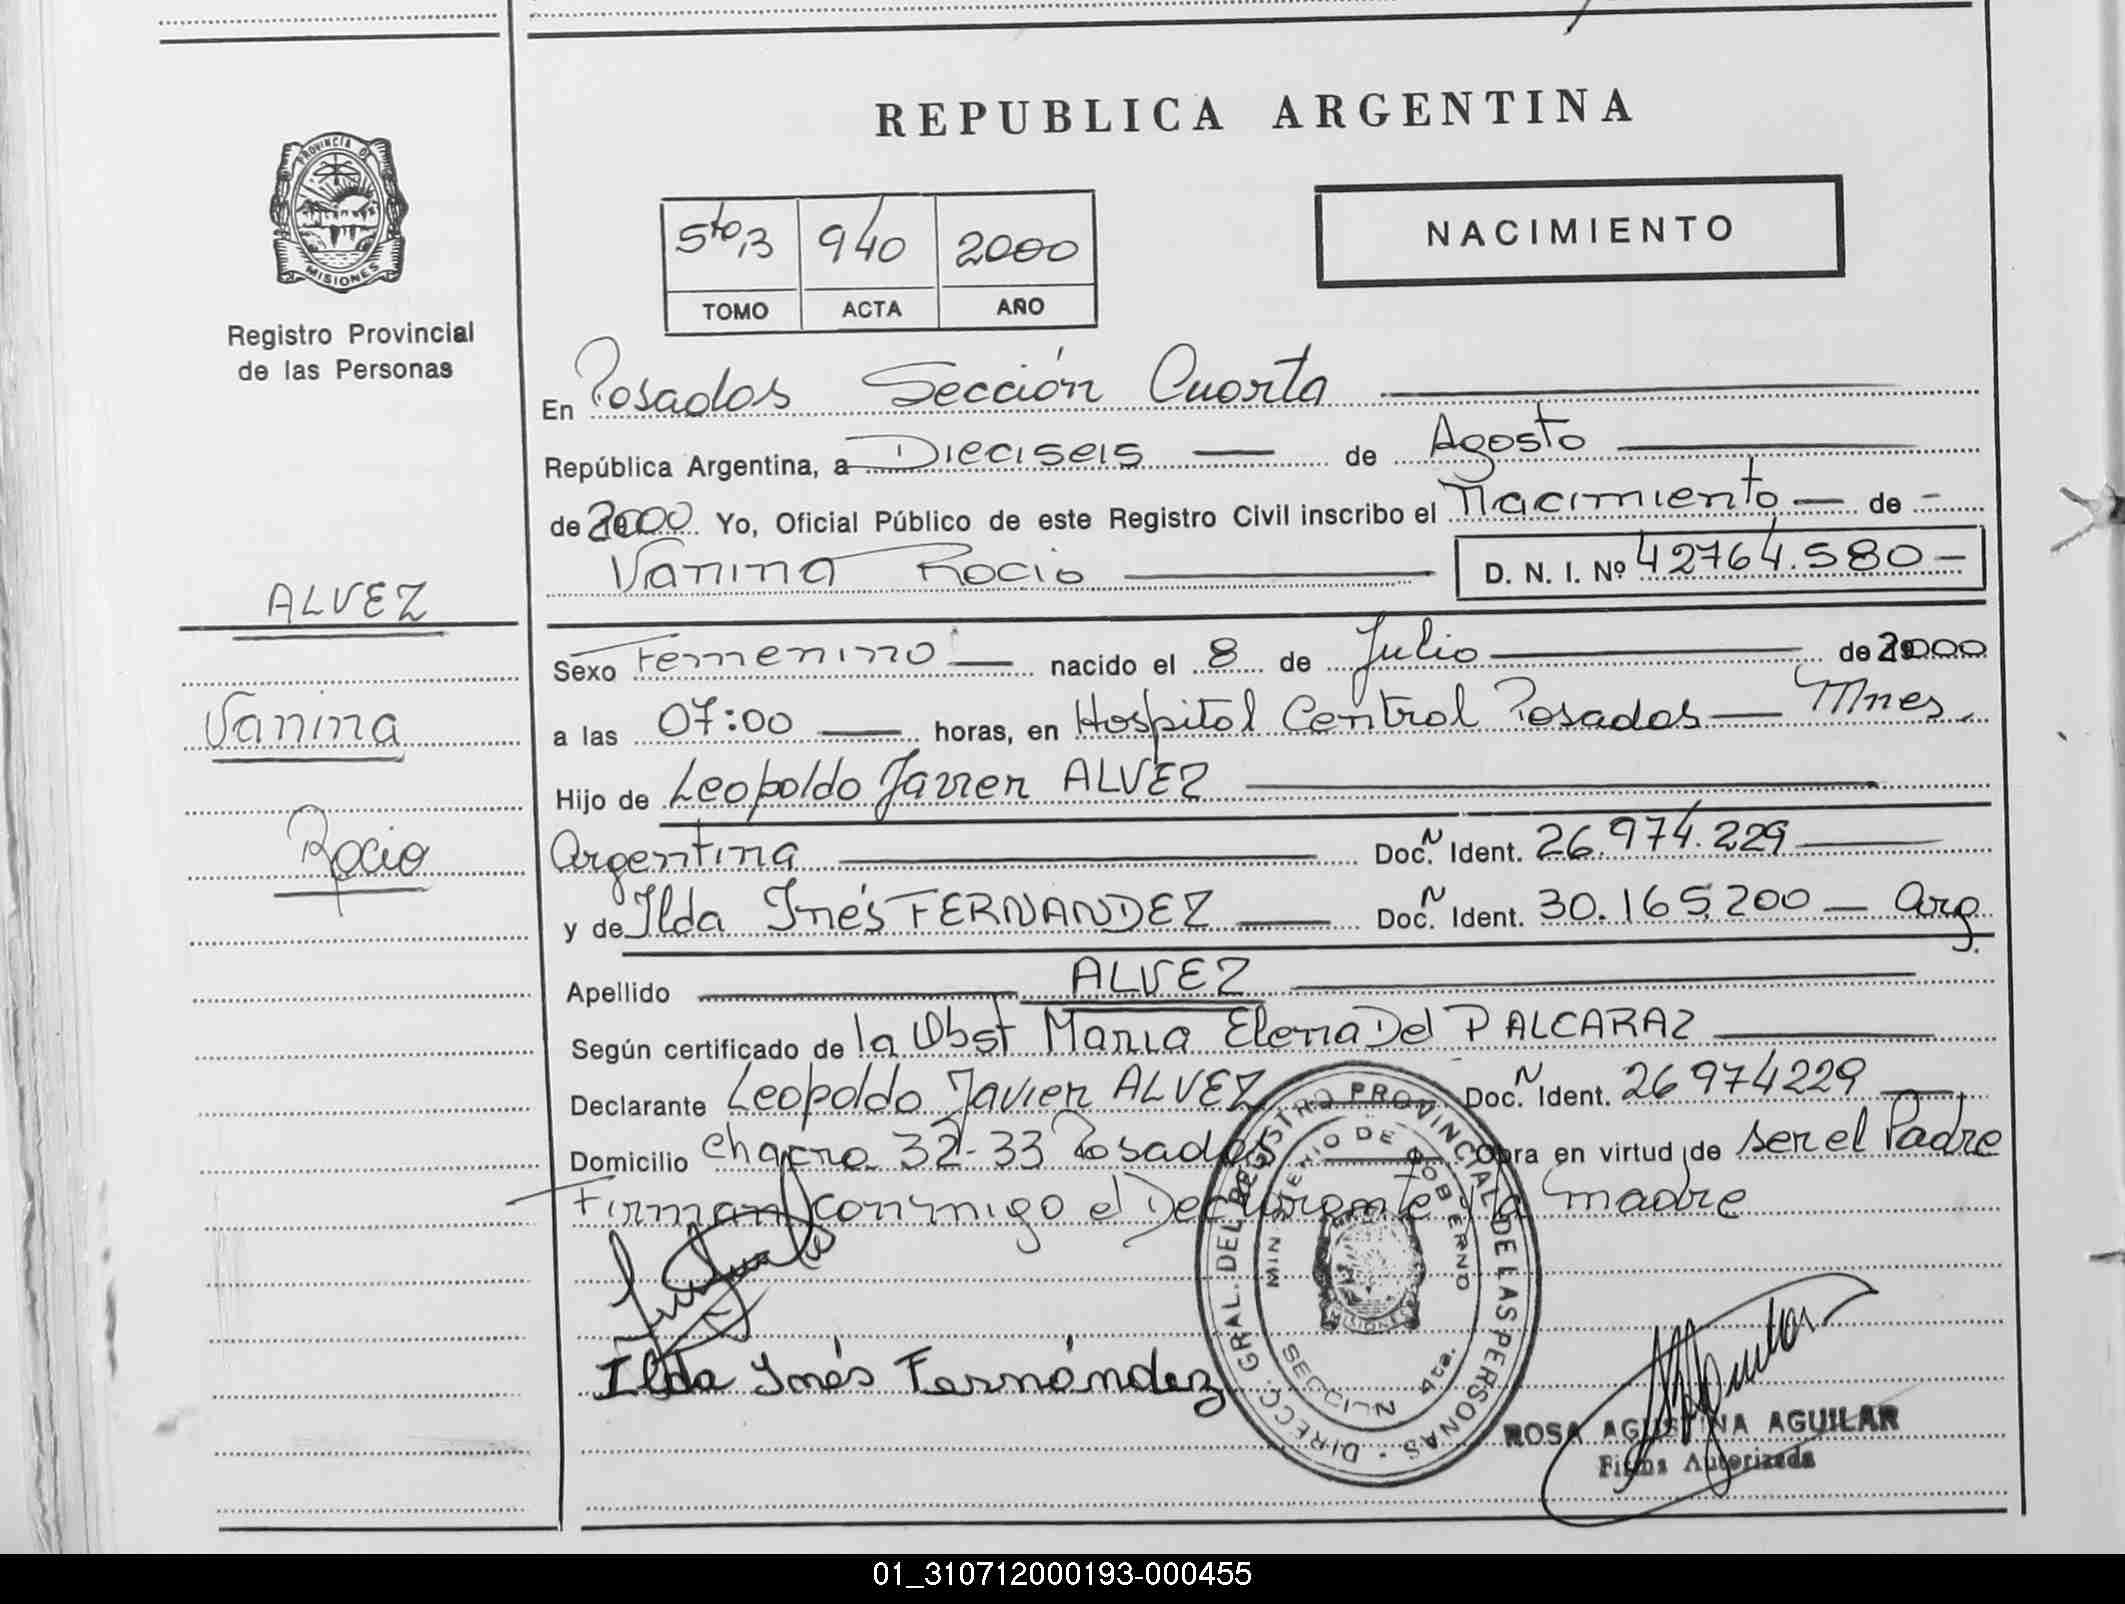 REPUBLICA ARGENTINA
PROVINCIA DE
MISIONES
Registro Provincial
de las Personas
5to,3 940 2000
TOMO ACTA AÑO
NACIMIENTO
En Posadas Sección Cuarta
República Argentina, a Dieciseis de Agosto
de 2000 Yo, Oficial Público de este Registro Civil inscribo el Nacimiento de
Vanina Rocio D. N. I. Nº 42764.580
ALVEZ
Vanina
Rocio
Sexo Femenino nacido el 8 de Julio de 2000
a las 07:00 horas, en Hospital Central Posadas Mnes.
Hijo de Leopoldo Javier ALVEZ
Argentina Doc. N Ident. 26.974.229
y de Ilda Inés FERNANDEZ Doc. N Ident. 30.165.200 Arg.
Apellido ALVEZ
Según certificado de la Obst Maria Elena Del P ALCARAZ
Declarante Leopoldo Javier ALVEZ Doc. N Ident. 26974229
Domicilio Chacra 32-33 Posadas Obra en virtud de ser el Padre
Firman conmigo el Declarante y la madre
DIRECC. GRAL. DEL REGISTRO PROVINCIAL DE LAS PERSONAS
MINISTERIO DE GOBIERNO
MISIONES
SECCION 4ta.
Ilda Inés Fernández
ROSA AGUSTINA AGUILAR
Firma Autorizada
01_310712000193-000455